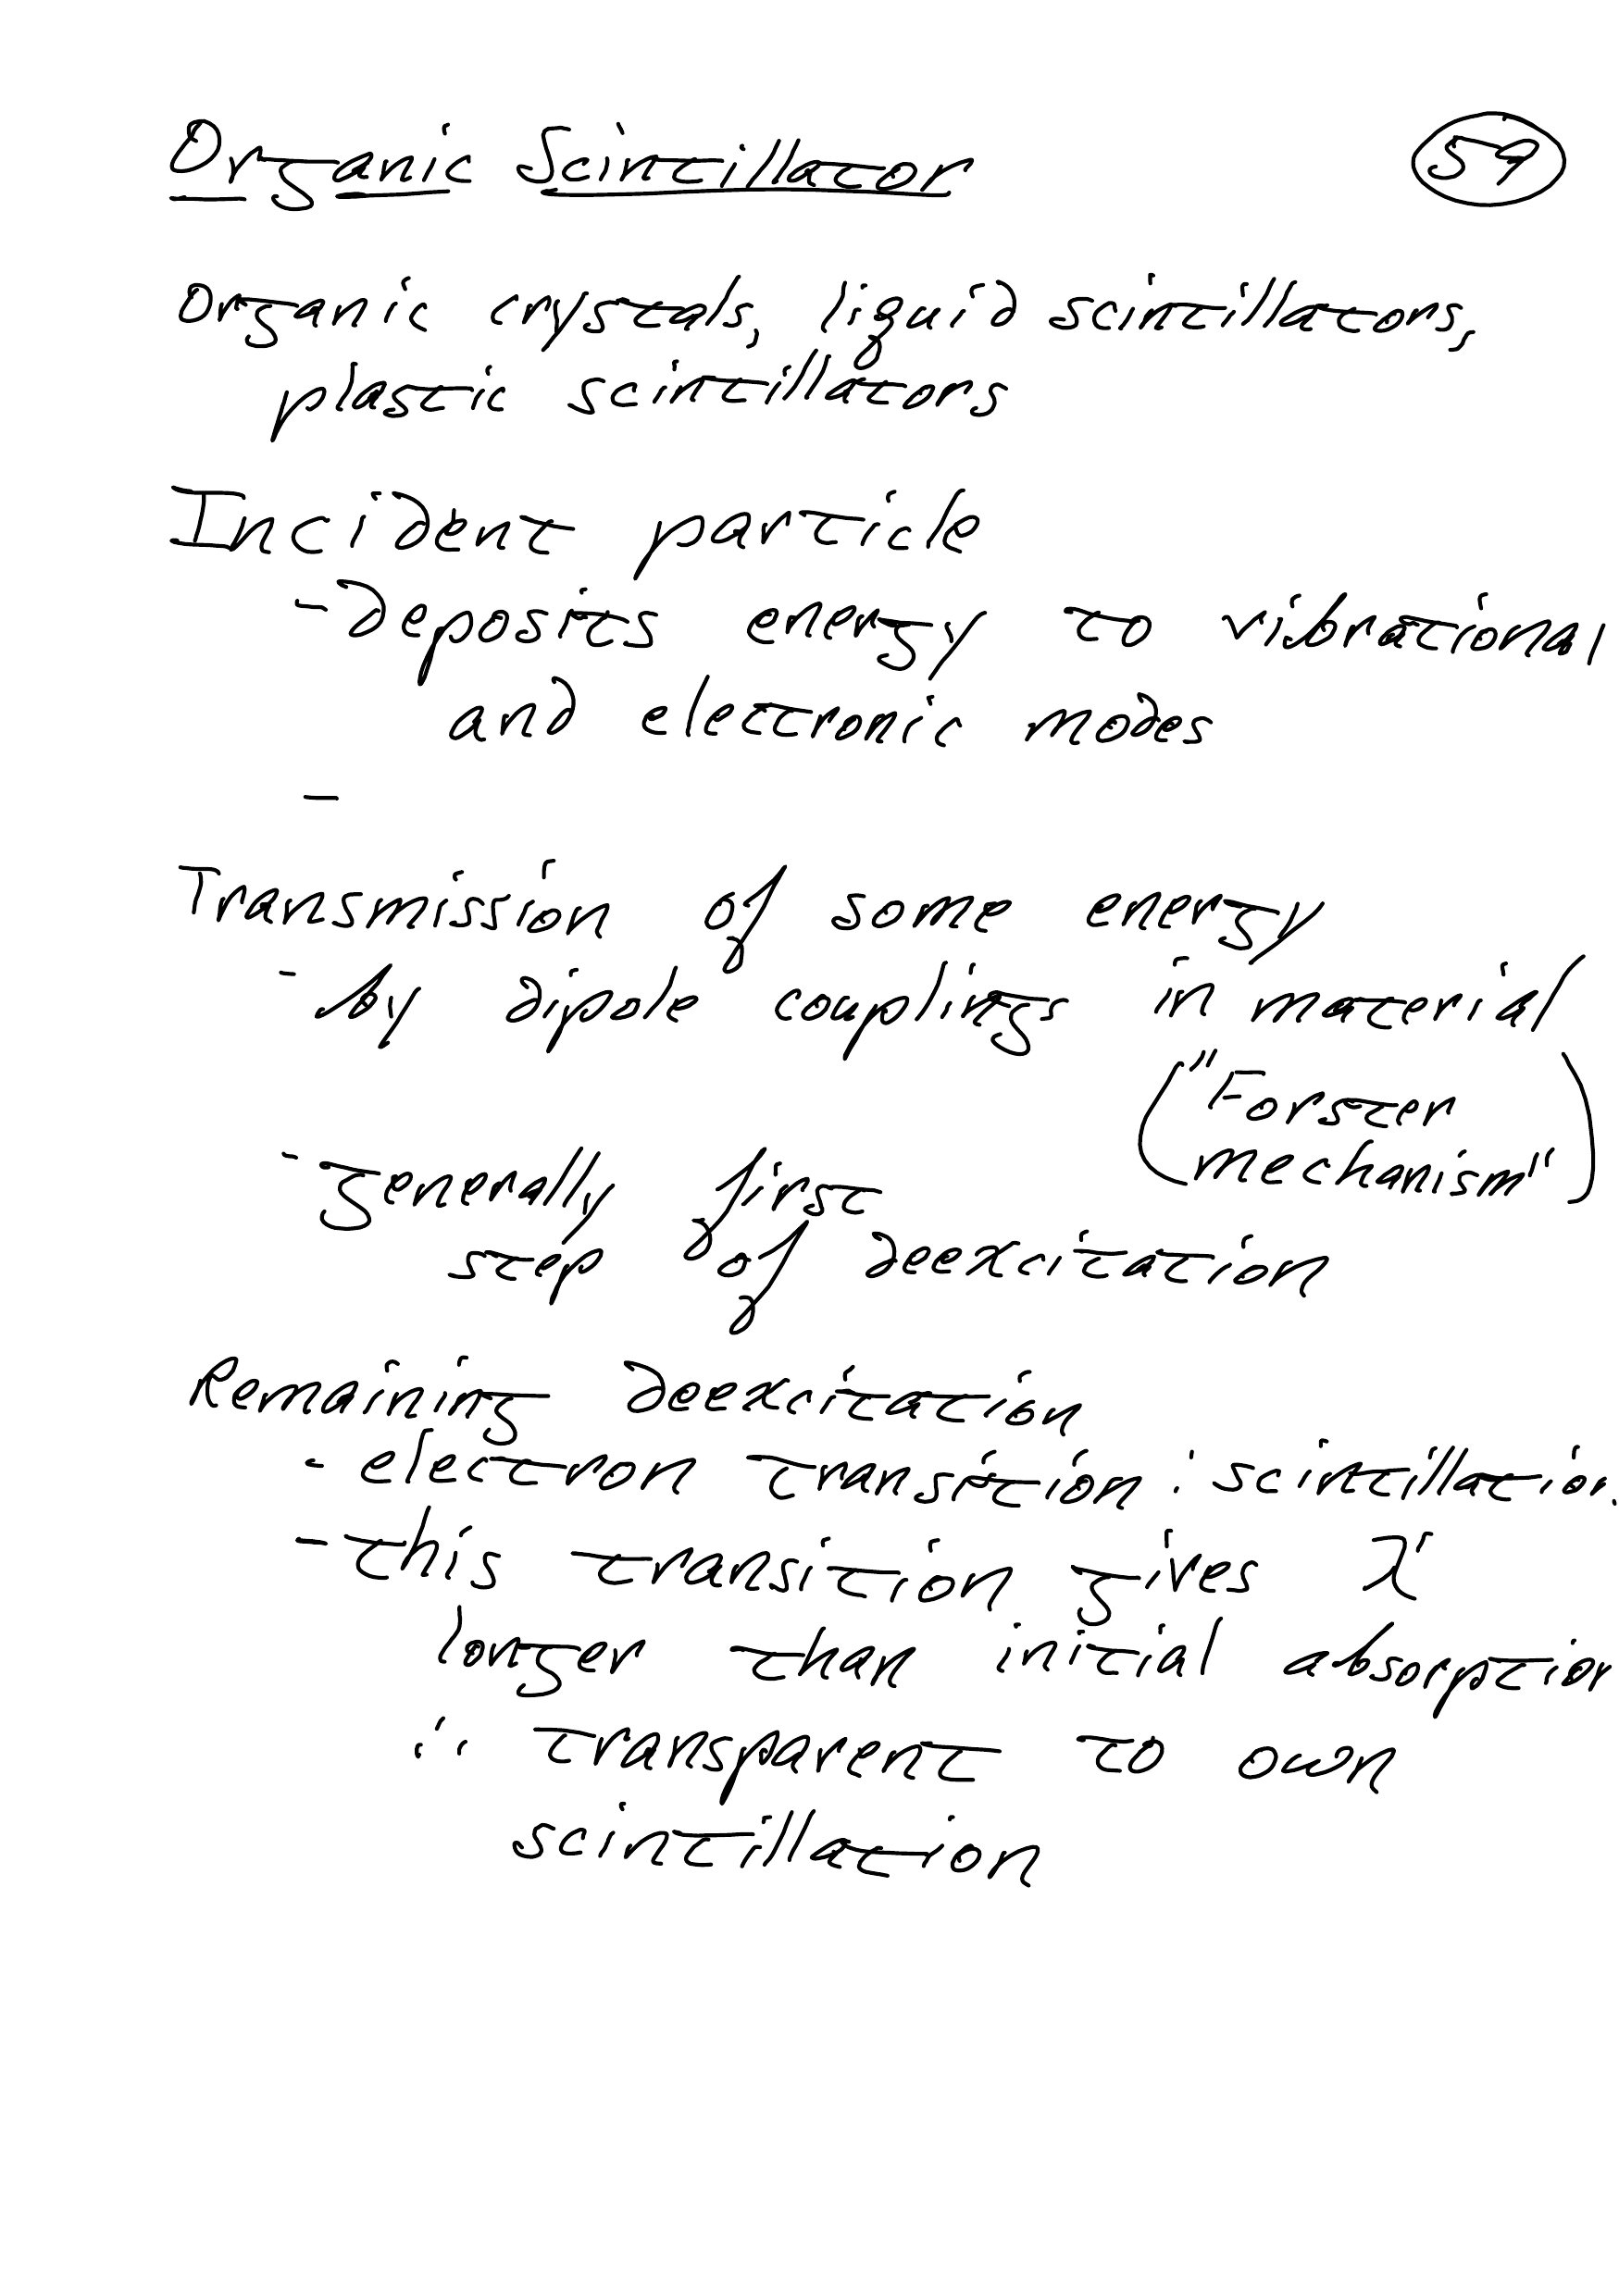 Organic Scintillator
59
Organic crystals, liquid scintillators,
plastic scintillators
Incident particle
- Deposits energy to vibrational
and electronic modes
-
Transmission of some energy
- by dipole couplings in material
("Forster
mechanism")
- generally first
step of deexcitation
Remaining deexcitation
- electron transition : scintillation.
- this transition gives λ
longer than initial absorption
∴ transparent to own
scintillation